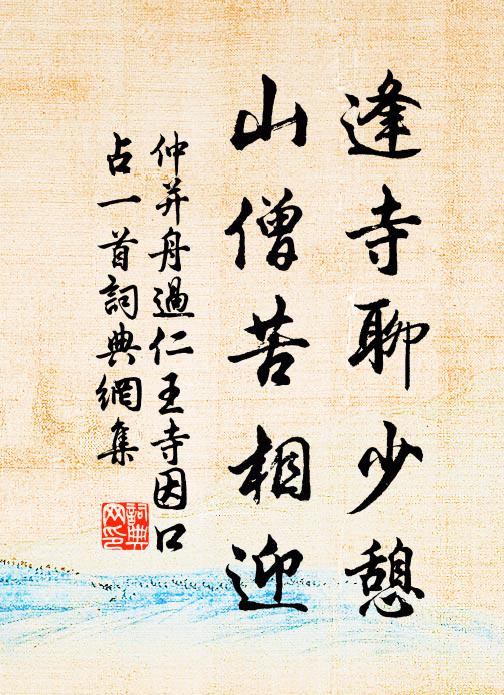 逢寺聊少憩
山僧苦相迎
仲并舟過仁王寺因口
占一首詞典網集
詞典
网印